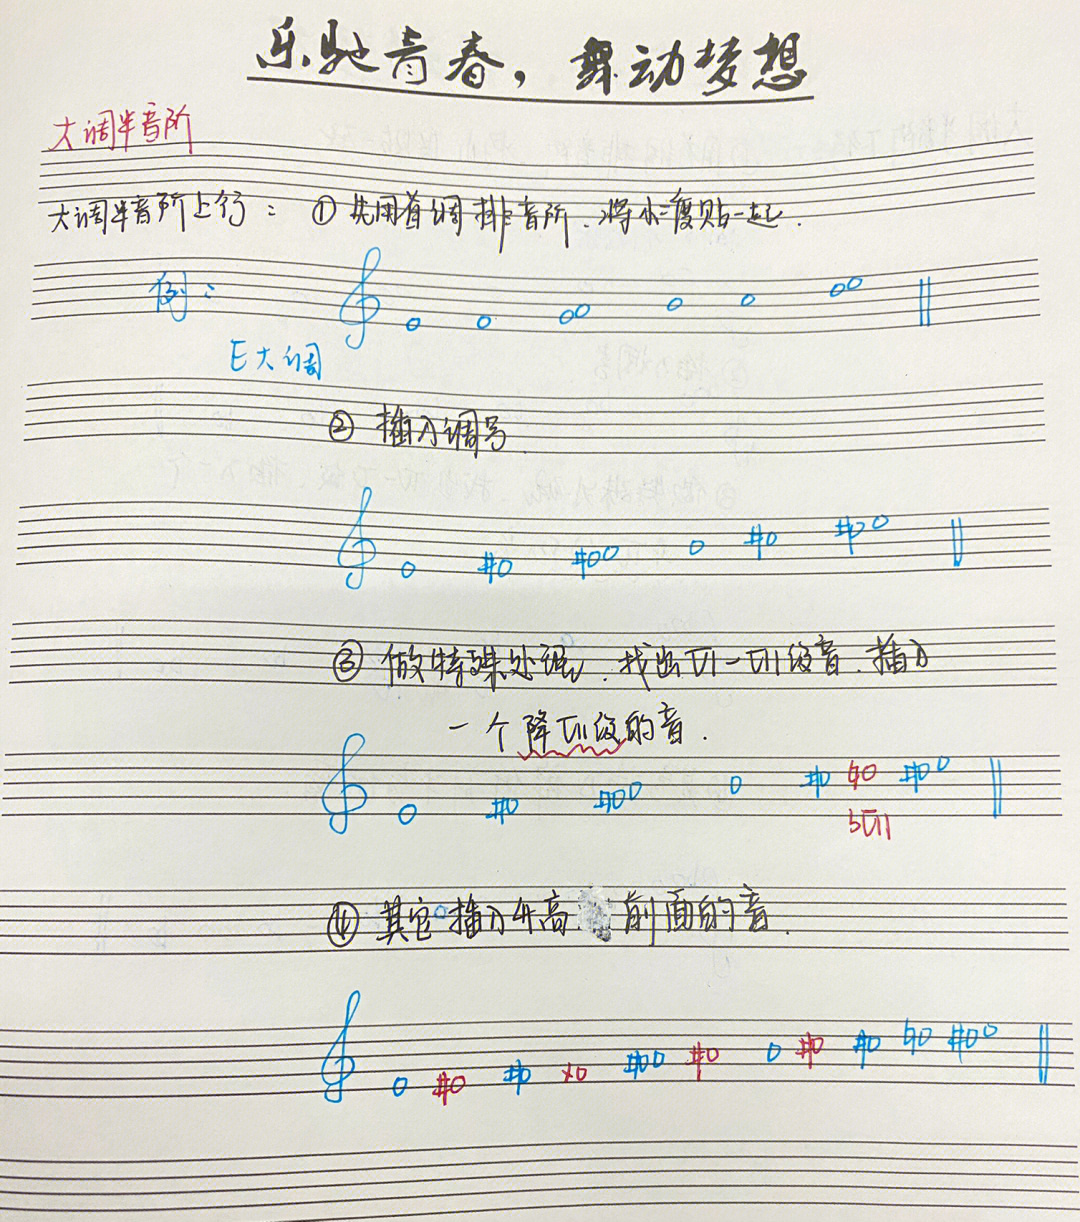 乐驰青春，舞动梦想
大调半音阶
大调半音阶上行：①先用首调排音阶.将小二度贴一起.
例：
E大调
②插入调号.
③做特殊处理.找出Ⅵ—Ⅶ级音.插入
一个降Ⅶ级的音.
♭Ⅶ
④其它插入升高前面的音.